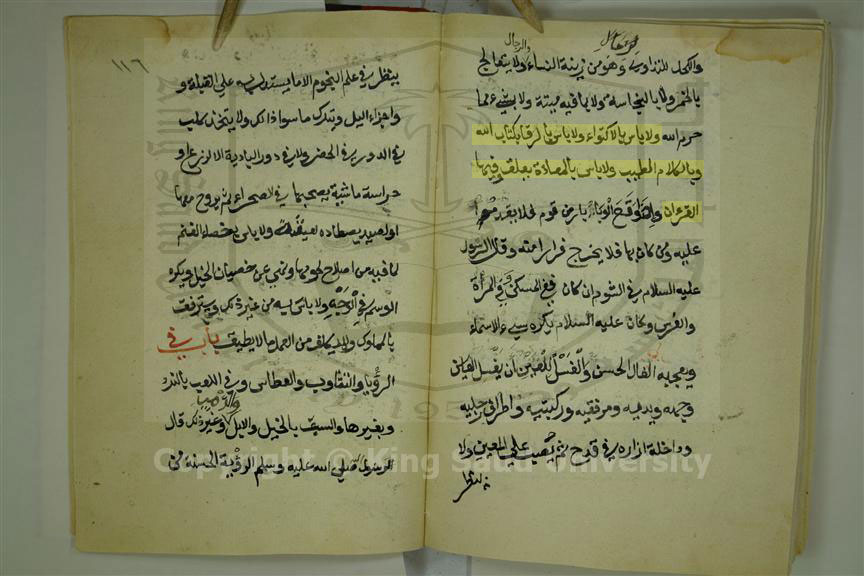 والرجال
والكحل للتداوي وهو من زينة النساء ولا يتعالج
بالخمر ولا بالنجاسة ولا بما فيه ميتة ولا بشيء مما
حرم الله ولا باس بالاكتواء ولا باس بالرقا بكتاب الله
وبالكلام الطيب ولا باس بالمعاذة تعلق وفيها
القرءان وإذا وقع الوباء بارض قوم فلا يقدم
عليه ومن كان بها فلا يخرج فرارا منه وقال الرسول
عليه السلام في الشوم ان كان ففي المسكن والمرأة
والفرس وكان عليه السلام يكره سيء الاسماء
ويعجبه الفال الحسن والغسل للعين أن يغسل العاين
وجهه ويديه ومرفقيه وركبتيه واطراف رجليه
وداخلة ازاره في قدح ثم يصب على المعين ولا
ينظر
١١٦
ينظر في علم النجوم الا ما يستدل به على القبلة و
واجزاء اليل ويترك ما سوا ذالك ولا يتخذ كلب
في الدور في الحضر ولا في دور البادية الا لزرع او
حراسة ماشية يصحبها في الصحراء ثم يروح معها
او لصيد يصطاده لعيشه ولا باس بخصاء الغنم
لما فيه من اصلاح لحومها ونهي عن خصيان الخيل ويكره
الوسم في الوجه ولا باس به من غير ذلك ويترفق
بالمملوك ولا يكلف من العمل ما لا يطيق باب في
الرؤيا والتثاوب والعطاس وفي اللعب بالنرد
وبغيرها والسبق بالخيل والابل وغير ذلك قال
والرمي
الرسول صلى الله عليه وسلم الرؤية الحسنة من
Copyright © King Saud University
1957